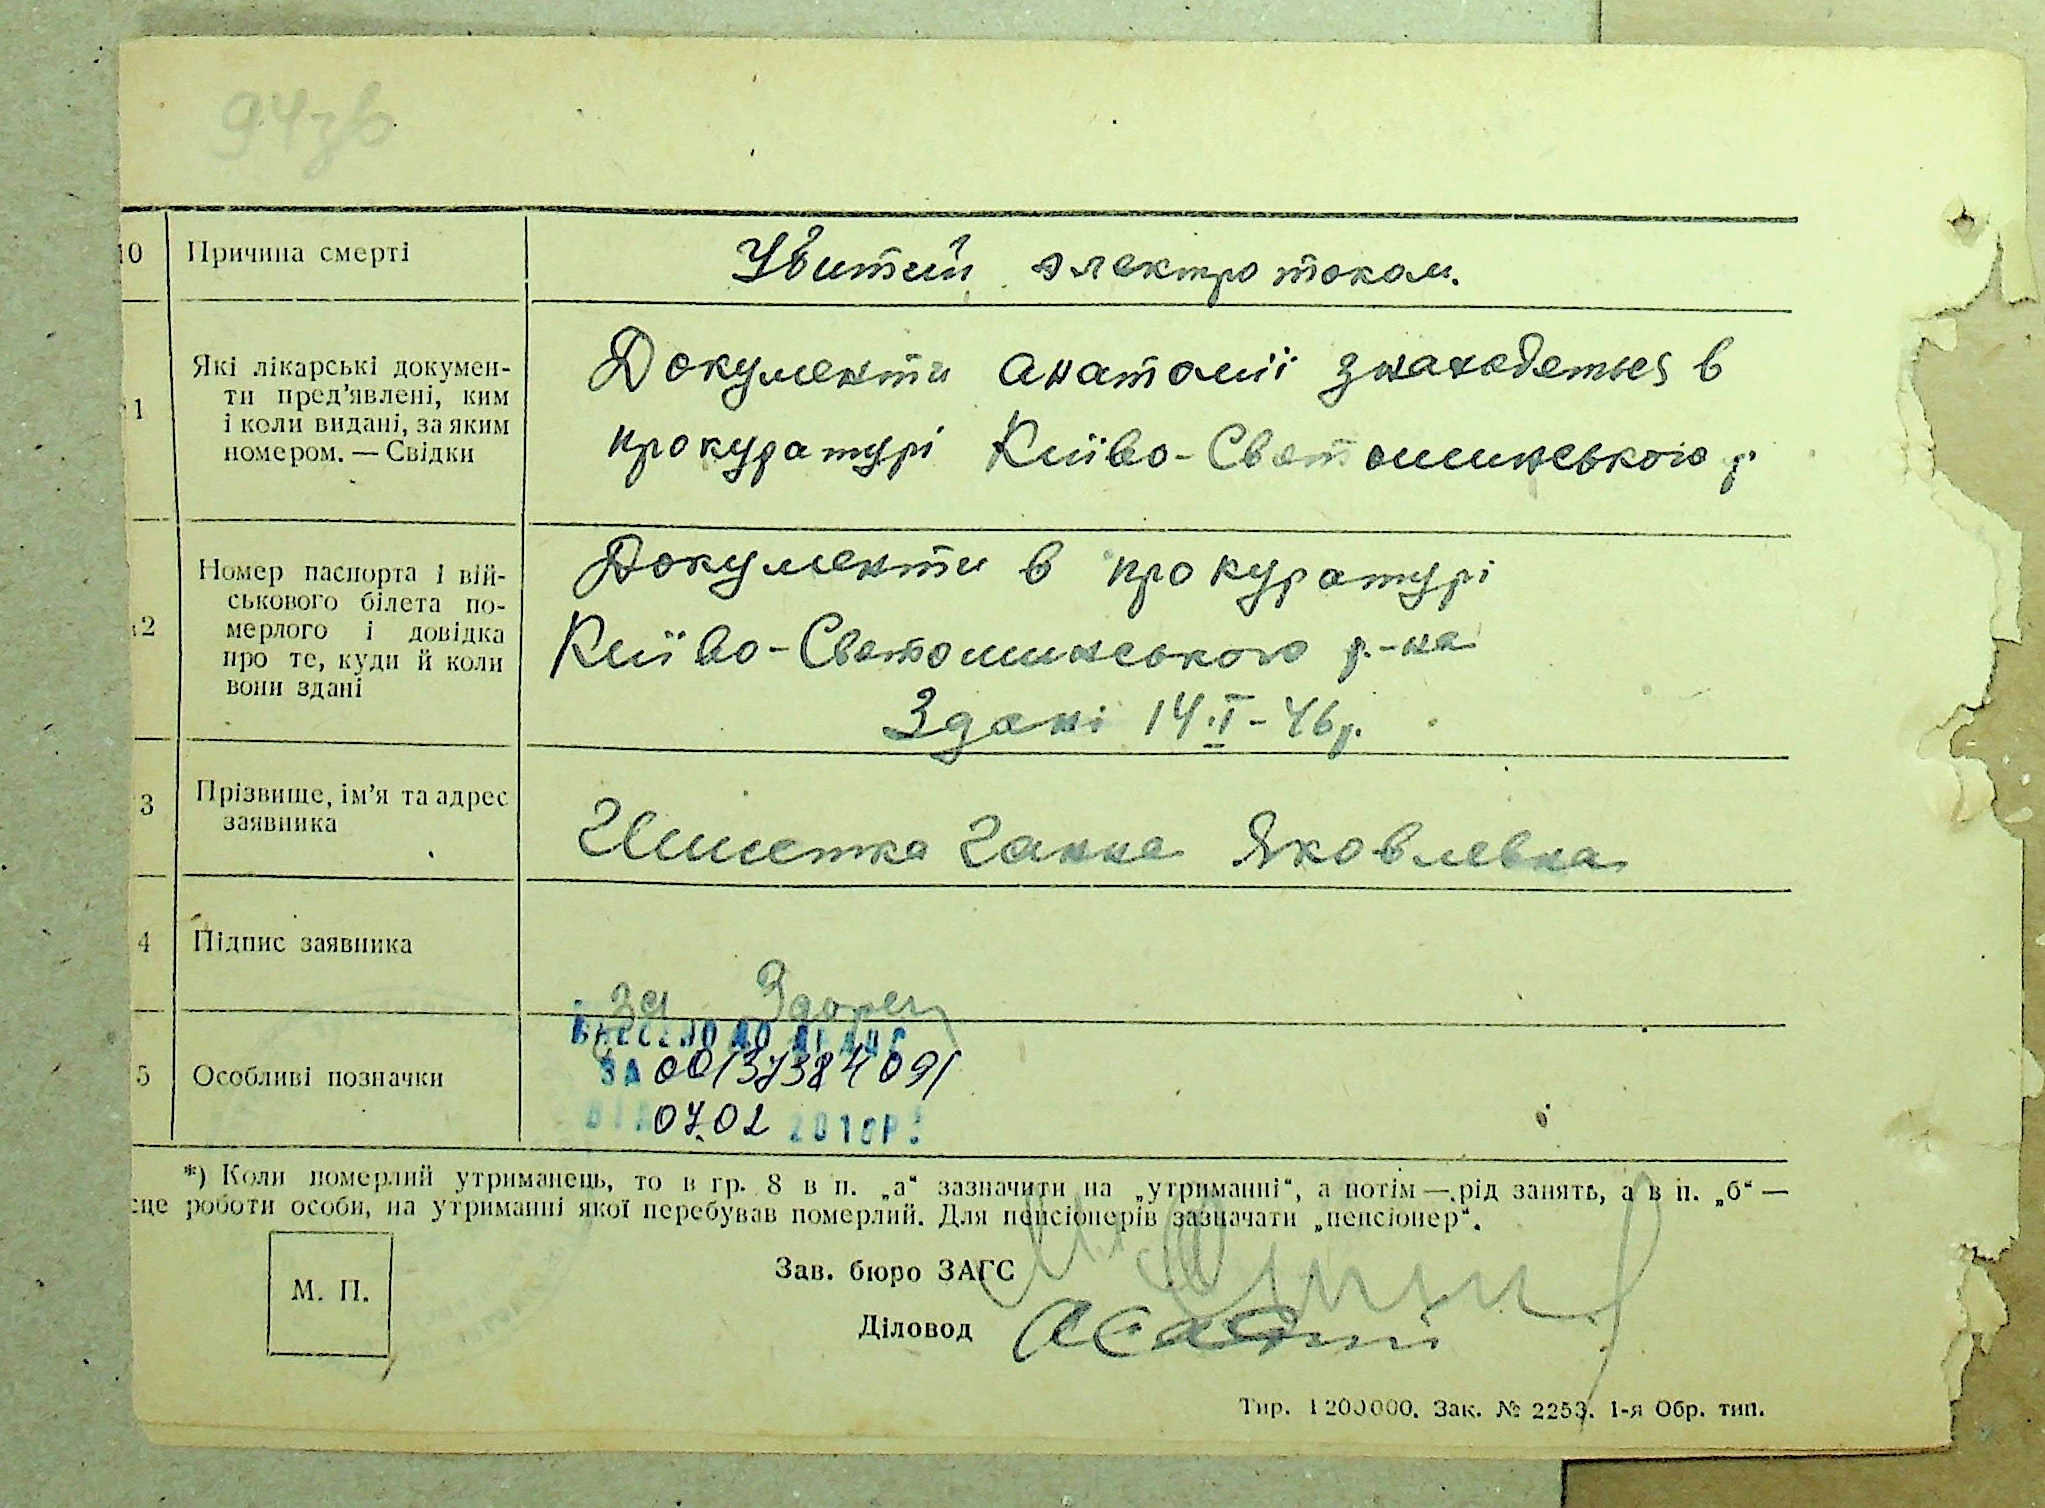 94зв
10 Причина смерті Убитий электротоком.
11 Які лікарські докумен-
ти пред’явлені, ким
і коли видані, за яким
номером. — Свідки
Документи анатомії знаходеться в
прокуратурі Київо-Святошинського р.
12 Номер паспорта і вій-
ськового білета по-
мерлого і довідка
про те, куди й коли
вони здані
Документи в прокуратурі
Київо-Святошинського р.-на
Здані 14.I-46р.
3 Прізвище, ім’я та адрес
заявника
Ганна Яковлевна
4 Підпис заявника
за
ВНЕСЕНО ДО ДРАЦС
ЗА 00137384091
ВІД 07.02 2010Р.
5 Особливі позначки
*) Коли померлий утриманець, то в гр. 8 в п. „а“ зазначити на „утриманні“, а потім — рід занять, а в п. „б“ —
сце роботи особи, на утриманні якої перебував померлий. Для пенсіонерів зазначати „пенсіонер“.
М. П.
Зав. бюро ЗАГС
Діловод
Тир. 1200000. Зак. № 2253. 1-я Обр. тип.